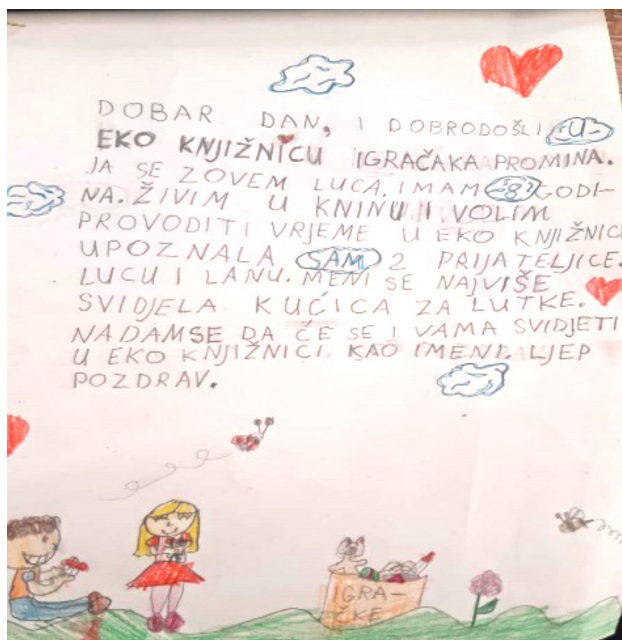 DOBAR DAN, I DOBRODOŠLI U
EKO KNJIŽNICU IGRAČAKA PROMINA.
JA SE ZOVEM LUCA. IMAM 8 GODI-
NA. ŽIVIM U KNINU I VOLIM
PROVODITI VRJEME U EKO KNJIŽNICI
UPOZNALA SAM 2 PRIJATELJICE.
LUCU I LANU. MENI SE NAJVIŠE
SVIDJELA KUĆICA ZA LUTKE.
NADAMSE DA ČE SE I VAMA SVIDJETI
U EKO KNJIŽNICI. KAO IMENI. LJEP
POZDRAV.
IGRA-
ČKE